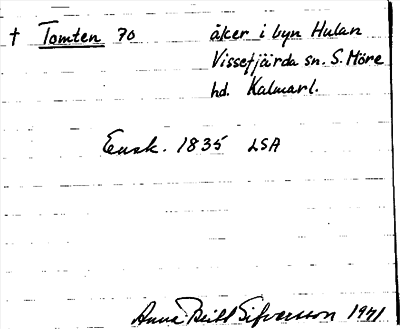 † Tomten 70 åker i byn Hulan
Vissefjärda sn. S. Möre
hd. Kalmarl.
Ensk. 1835 LSA
Anna Britt Sifversson 1971